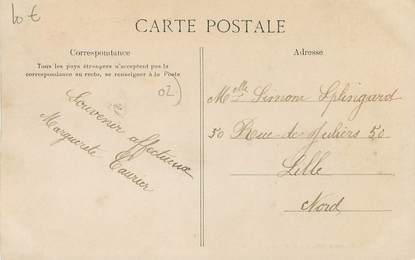 10 €
CARTE POSTALE
Correspondance
Tous les pays étrangers n'acceptent pas la
correspondance au recto, se renseigner à la Poste
02)
Souvenir affectueux
Marguerite
Adresse
Melle Simone Splingard
50 Rue de Juliers 50
Lille
Nord